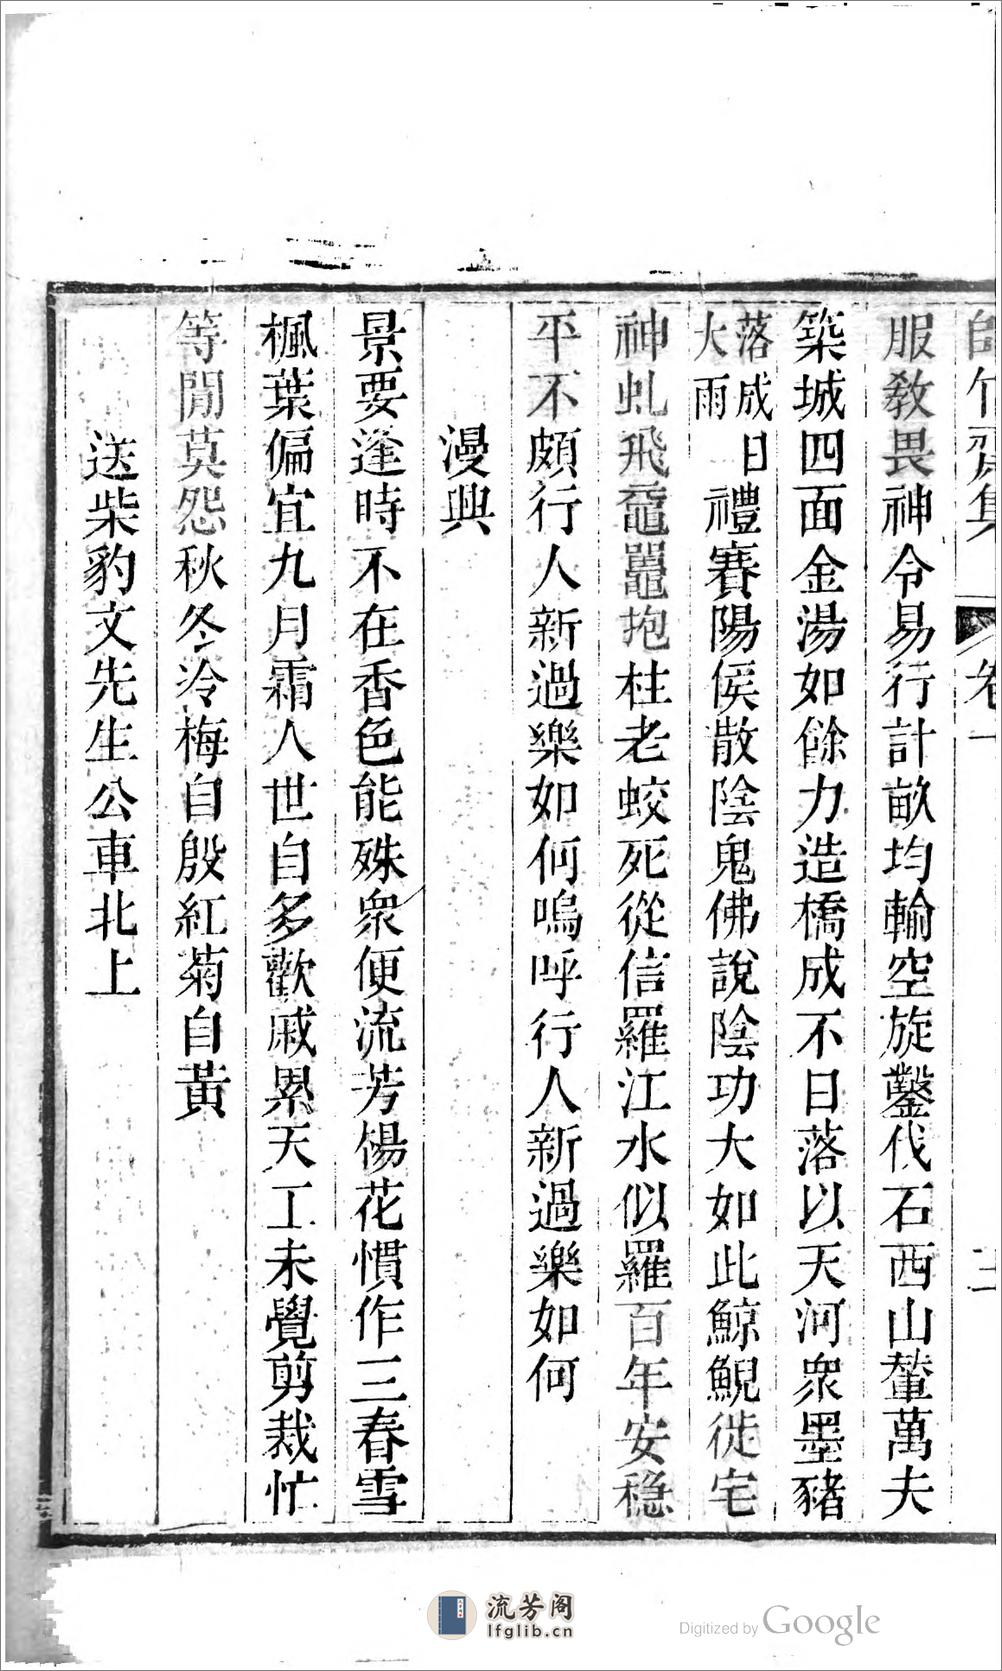 師竹齋集 卷一 二
服教畏神令易行計畝均輸空旋鑿伐石西山輦萬夫
築城四面金湯如餘力造橋成不日落以天河衆墨豬
落成日大雨禮賽陽侯散陰鬼佛說陰功大如此鯨鯢徙宅
神虬飛黿鼉抱柱老蛟死從信羅江水似羅百年安穩
平不頗行人新過樂如何嗚呼行人新過樂如何
漫興
景要逢時不在香色能殊衆便流芳楊花慣作三春雪
楓葉偏宜九月霜人世自多歡戚累天工未覺剪裁忙
等閒莫怨秋冬冷梅自殷紅菊自黃
送柴豹文先生公車北上
流芳阁
lfglib.cn
Digitized by Google